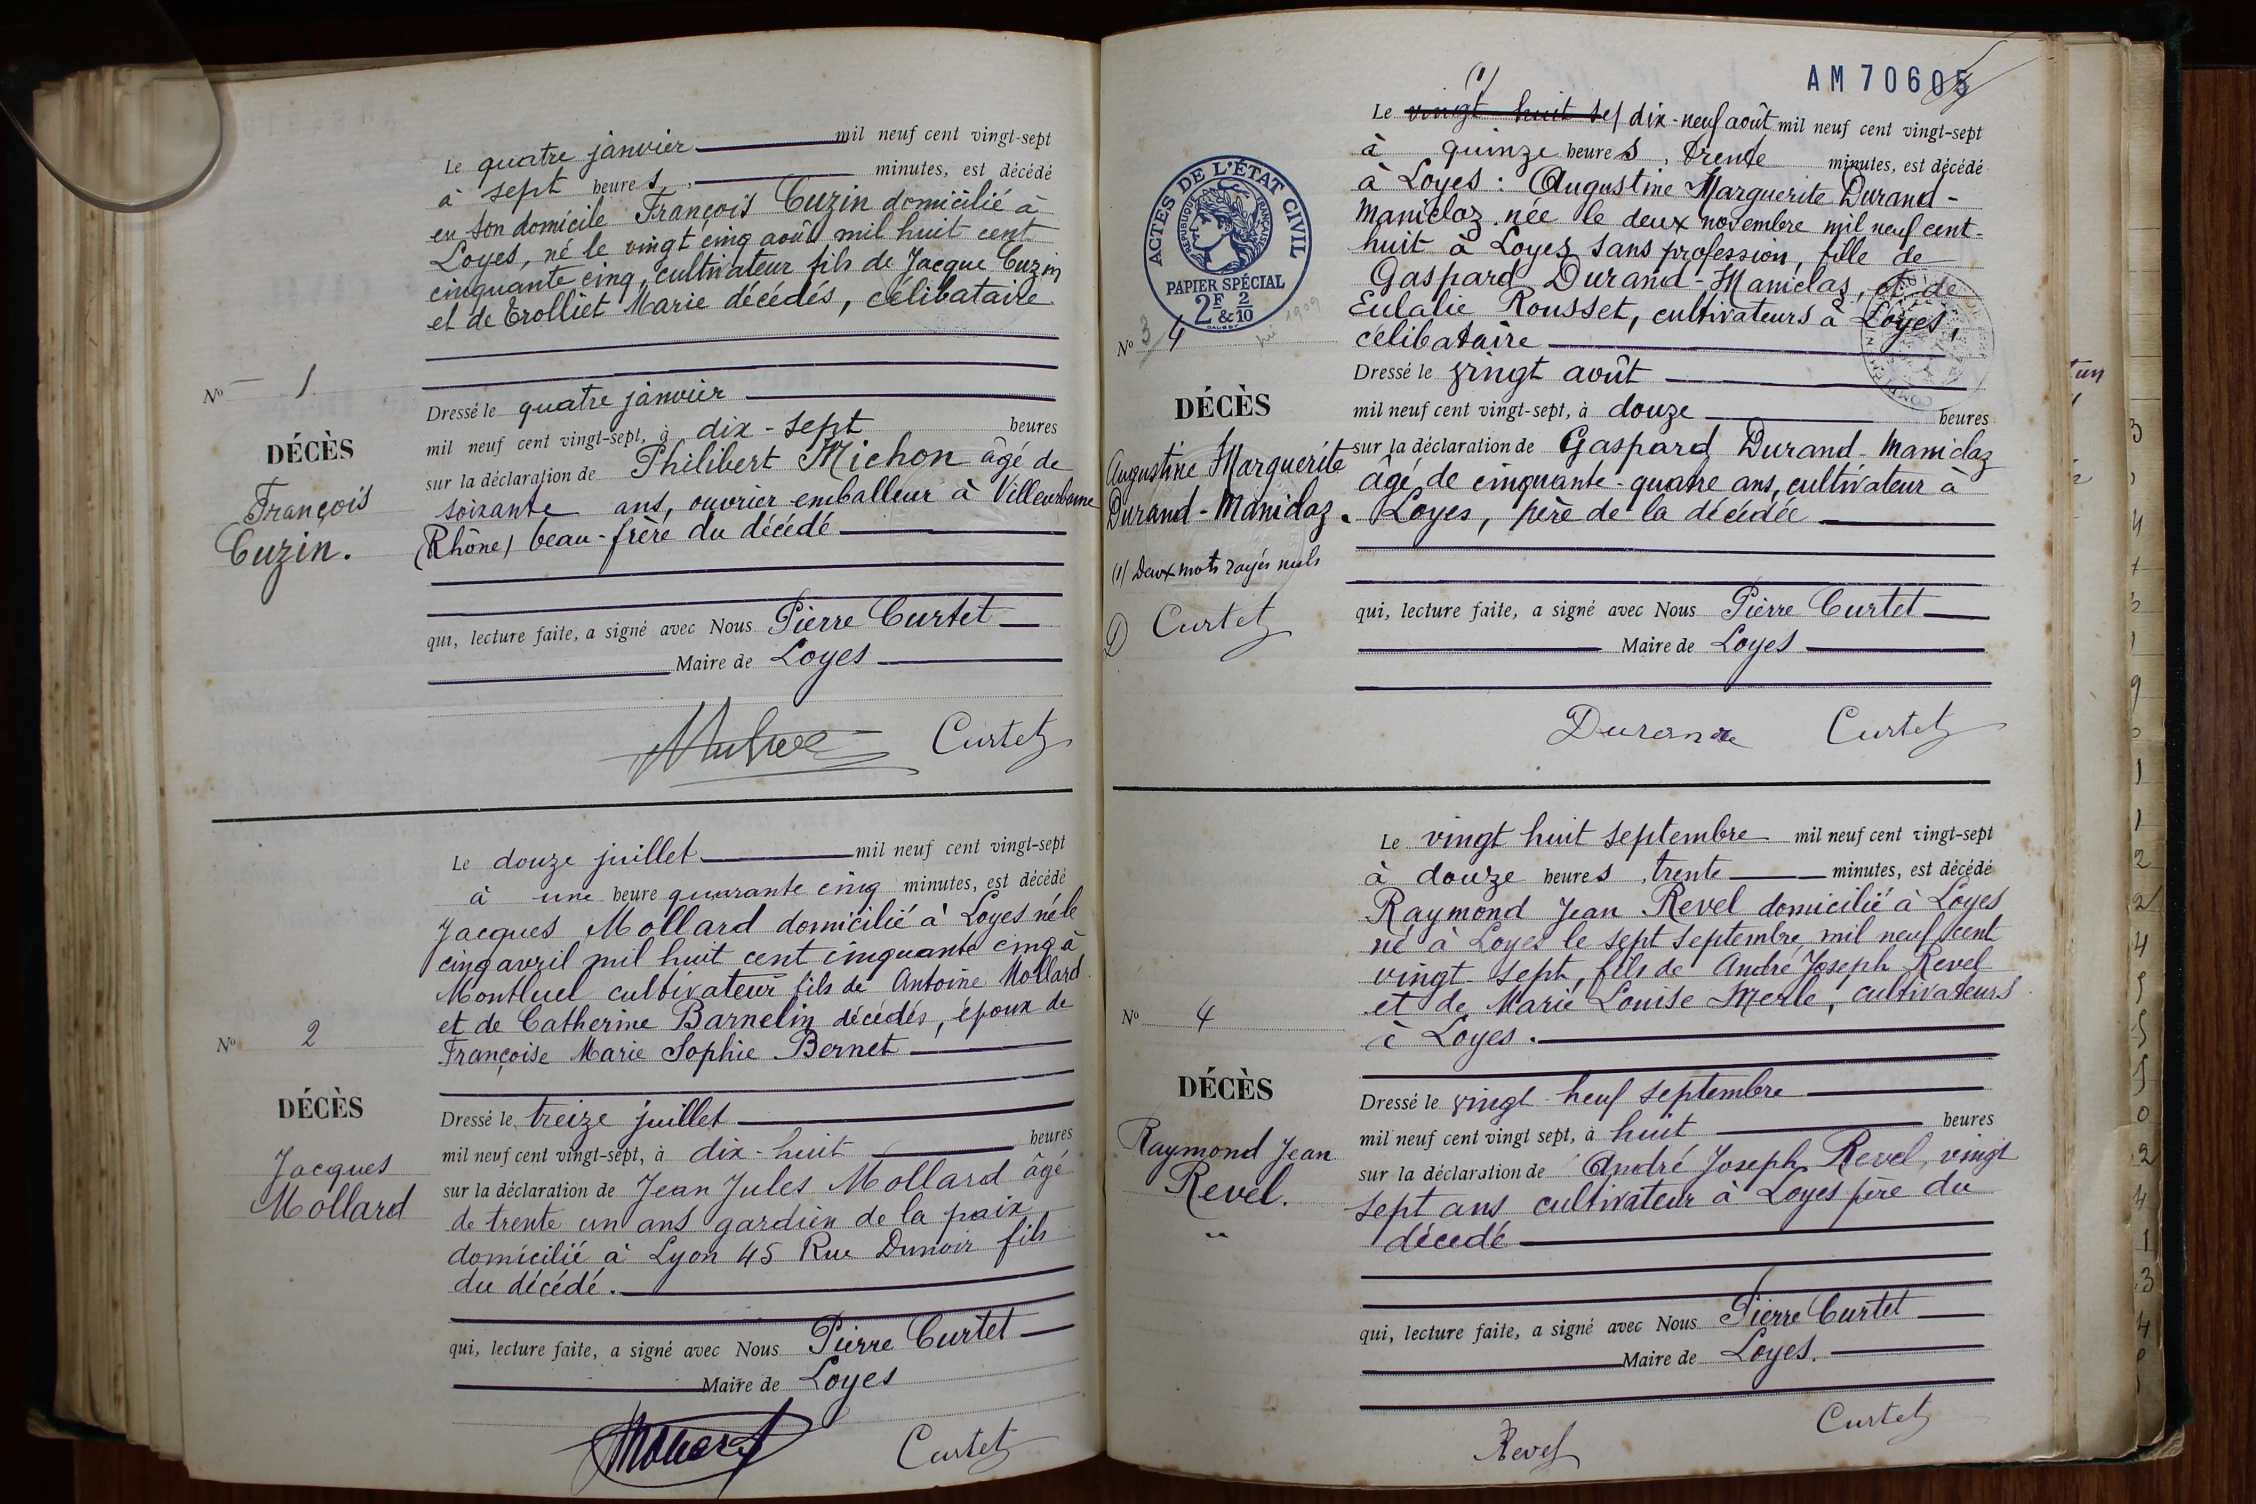 Le quatre janvier mil neuf cent vingt-sept
à sept heures, minutes, est décédé
en son domicile François Cuzin domicilié à
Loyes, né le vingt cinq août mil huit cent
cinquante cinq, cultivateur fils de Jacque Cuzin
et de Trolliet Marie décédés, célibataire
No 1
DÉCÈS
François
Cuzin.
Dressé le quatre janvier
mil neuf cent vingt-sept, à dix-sept heures
sur la déclaration de Philibert Michon âgé de
soixante ans, ouvrier emballeur à Villeurbanne
(Rhône) beau-frère du décédé
qui, lecture faite, a signé avec Nous Pierre Curtet
Maire de Loyes
Curtet
Le douze juillet mil neuf cent vingt-sept
à une heure quarante cinq minutes, est décédé
Jacques Mollard domicilié à Loyes né le
cinq avril mil huit cent cinquante cinq à
Montluel cultivateur fils de Antoine Mollard
et de Catherine Barnelin décédés, époux de
Françoise Marie Sophie Bernet
No 2
DÉCÈS
Jacques
Mollard
Dressé le treize juillet
mil neuf cent vingt-sept, à dix-huit heures
sur la déclaration de Jean Jules Mollard âgé
de trente un ans gardien de la paix
domicilié à Lyon 45 Rue Dunoir fils
du décédé.
qui, lecture faite, a signé avec Nous Pierre Curtet
Maire de Loyes
Mollard Curtet
AM 70605
(1)
Le vingt huit se/ dix-neuf août mil neuf cent vingt-sept
à quinze heures, trente minutes, est décédé
à Loyes : Augustine Marguerite Durand-
Maniclaz née le deux novembre mil neuf cent-
huit à Loyes sans profession, fille de
Gaspard Durand-Maniclaz, et de
Eulalie Rousset, cultivateurs à Loyes,
célibataire
ACTES DE L'ÉTAT CIVIL
RÉPUBLIQUE FRANÇAISE
PAPIER SPÉCIAL
2F & 2/10
No 3
DÉCÈS
Augustine Marguerite
Durand-Maniclaz.
(1) Deux mots rayés nuls
D Curtet
Dressé le vingt août
mil neuf cent vingt-sept, à douze heures
sur la déclaration de Gaspard Durand-Maniclaz
âgé de cinquante-quatre ans, cultivateur à
Loyes, père de la décédée
qui, lecture faite, a signé avec Nous Pierre Curtet
Maire de Loyes
Durand Curtet
Le vingt huit septembre mil neuf cent vingt-sept
à douze heures, trente minutes, est décédé
Raymond Jean Revel domicilié à Loyes
né à Loyes le sept septembre mil neuf cent
vingt-sept, fils de André Joseph Revel
et de Marie Louise Merle, cultivateurs
à Loyes.
No 4
DÉCÈS
Raymond Jean
Revel.
Dressé le vingt-neuf septembre
mil neuf cent vingt sept, à huit heures
sur la déclaration de André Joseph Revel, vingt
sept ans cultivateur à Loyes père du
décédé
qui, lecture faite, a signé avec Nous Pierre Curtet
Maire de Loyes.
Revel Curtet